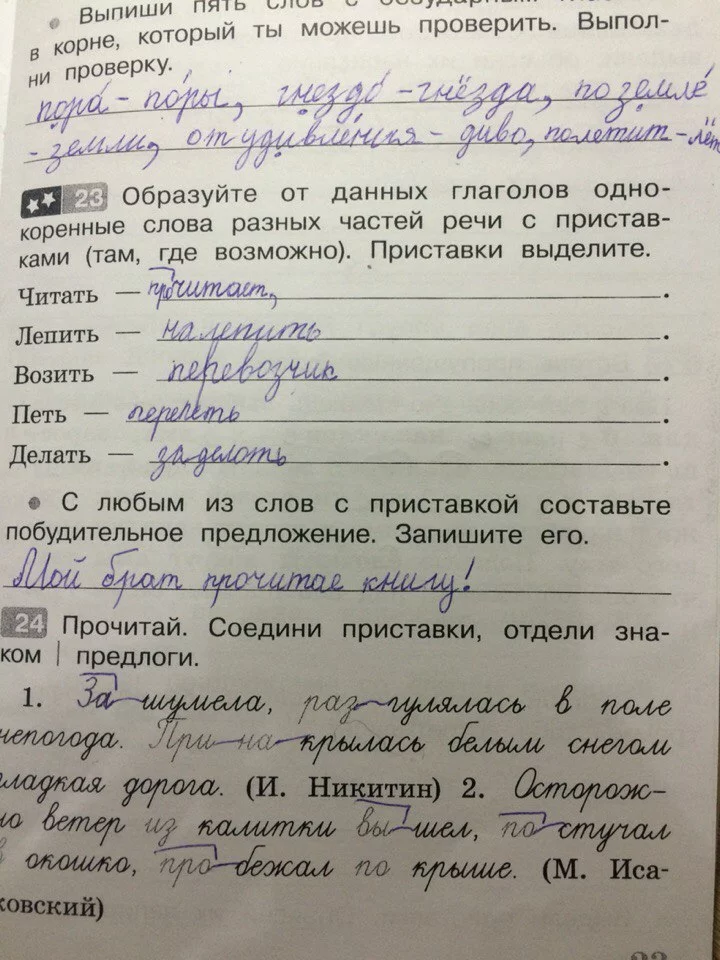 Выпиши пять слов с безударным
в корне, который ты можешь проверить. Выпол-
ни проверку.
пора́ - по́ры, гнездо́ - гнёзда, по земле́
- земли, от удивле́ния - диво, полетит - лёт
23 Образуйте от данных глаголов одно-
коренные слова разных частей речи с пристав-
ками (там, где возможно). Приставки выделите.
Читать — прочитает, .
Лепить — налепить .
Возить — перевозчик .
Петь — перепеть .
Делать — заделоть .
• С любым из слов с приставкой составьте
побудительное предложение. Запишите его.
Мой брат прочитае книгу!
24 Прочитай. Соедини приставки, отдели зна-
ком | предлоги.
1. За шумела, раз гулялась в поле
непогода. При на крылась белым снегом
ладкая дорога. (И. Никитин) 2. Осторож-
но ветер из калитки вы шел, по стучал
в окошко, про бежал по крыше. (М. Иса-
ковский)